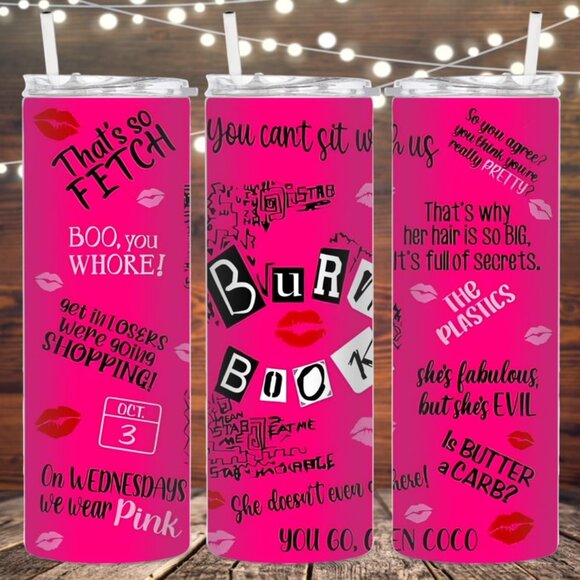 That's so
FETCH
BOO, you
WHORE!
get in LOSERS
we're going
SHOPPING!
OCT.
3
On WEDNESDAYS
we wear Pink
You can't sit w
BURN
BOOK
EAT ME
She doesn't even
YOU GO, G
h us
So you agree?
you think you're
really PRETTY?
That's why
her hair is so BIG,
it's full of secrets.
THE
PLASTICS
she's fabulous,
but she's EVIL
Is BUTTER
a CARB?
here!
EN COCO